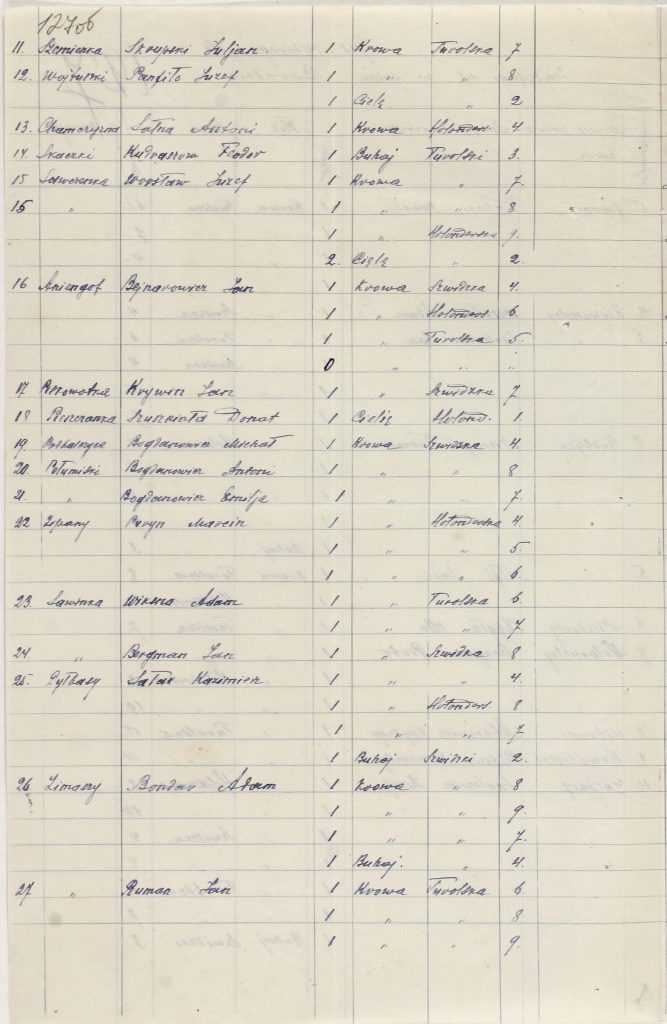 127об
11. Szemienka Skrypski Juljan. 1 Krowa Turolska 7
12. Wojtuszki Panfiło Józef 1 " " 8
1 Cielę " 2
13. Chamczyzna Łatka Antoni 1 Krowa Holenders. 4.
14. Skaczki Kudraszow Fiodor 1 Buhaj Turolski 3.
15 Sawczenka Worsław Józef 1 Krowa " 7.
15 " 1 " " 8
1 " Holenderska 9.
2. Cielę " 2.
16 Aniengof Bejnarowicz Jan 1 Krowa Szwidzka 4.
1 " Holenders. 6.
1 " Turolska 5.
0 " " "
17 Krywin Jan 1 " Szwidzka 7
18 Szuszniała Donat 1 Cielię Holend. 1.
19. Bogdanowicz Michał 1 Krowa Szwidzka 4.
20. Bogdanowicz Antoni 1 " " 8
21. " Bogdanowicz Emilja 1 " " 7.
22 Łopany Puryn Marcin 1 " Holenderska 4.
1 " " 5.
1 " " 6.
23. Sawinka Wiksna Adam 1 " Turolska 6.
1 " " 7.
24. " Bergman Jan 1 " Szwidzka 8
25. Łatak Kazimierz 1 " " 4.
1 " Holenders. 8
1 " " 7
1 Buhaj Szwidzki 2.
26. Zimoszy Bondar Adam 1 Krowa " 8
1 " " 9.
1 " " 7.
1 Buhaj. " 4.
27 " Ruman Jan 1 Krowa Turolska 6.
1 " " 8
1 " " 9.